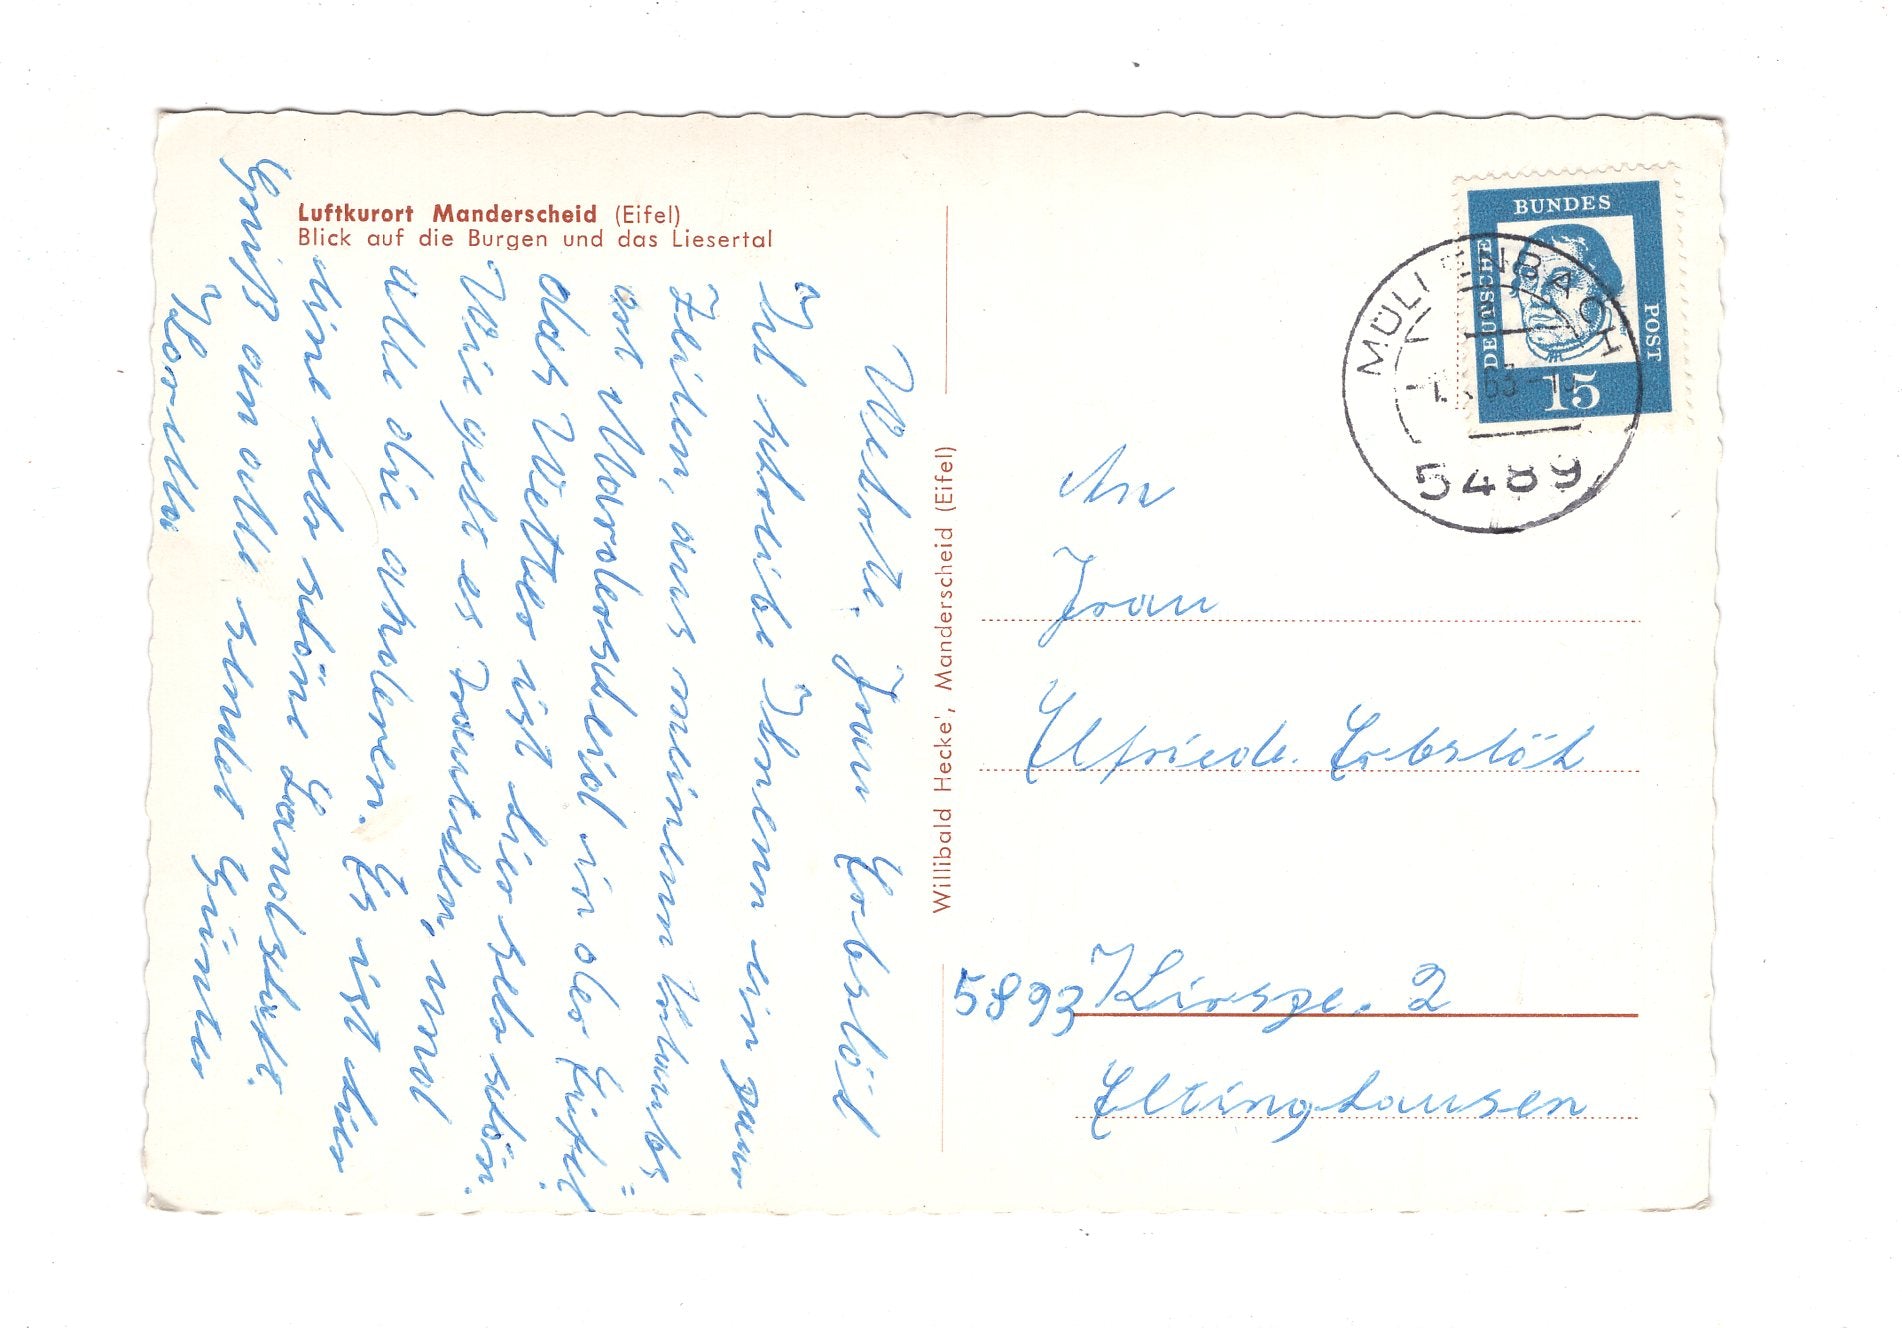 Luftkurort Manderscheid (Eifel)
Blick auf die Burgen und das Liesertal
Werte Frau Erbslöh
Ich schreibe Ihnen ein paar
Zeilen, aus meinem Urlaubs=
ort Manderscheid in der Eifel.
das Wetter ist hier sehr schön.
Wie geht es Frantchen, und
alle die anderen. Es ist hier
eine sehr schöne Landschaft.
Gruß an alle sendet Günter
Willibald Hecke', Manderscheid (Eifel)
BUNDES
DEUTSCHE
POST
15
MÜLLENBACH
5489
An
Frau
Elfriede Erbslöh
5893 Kirspe. 2
Eltinghausen